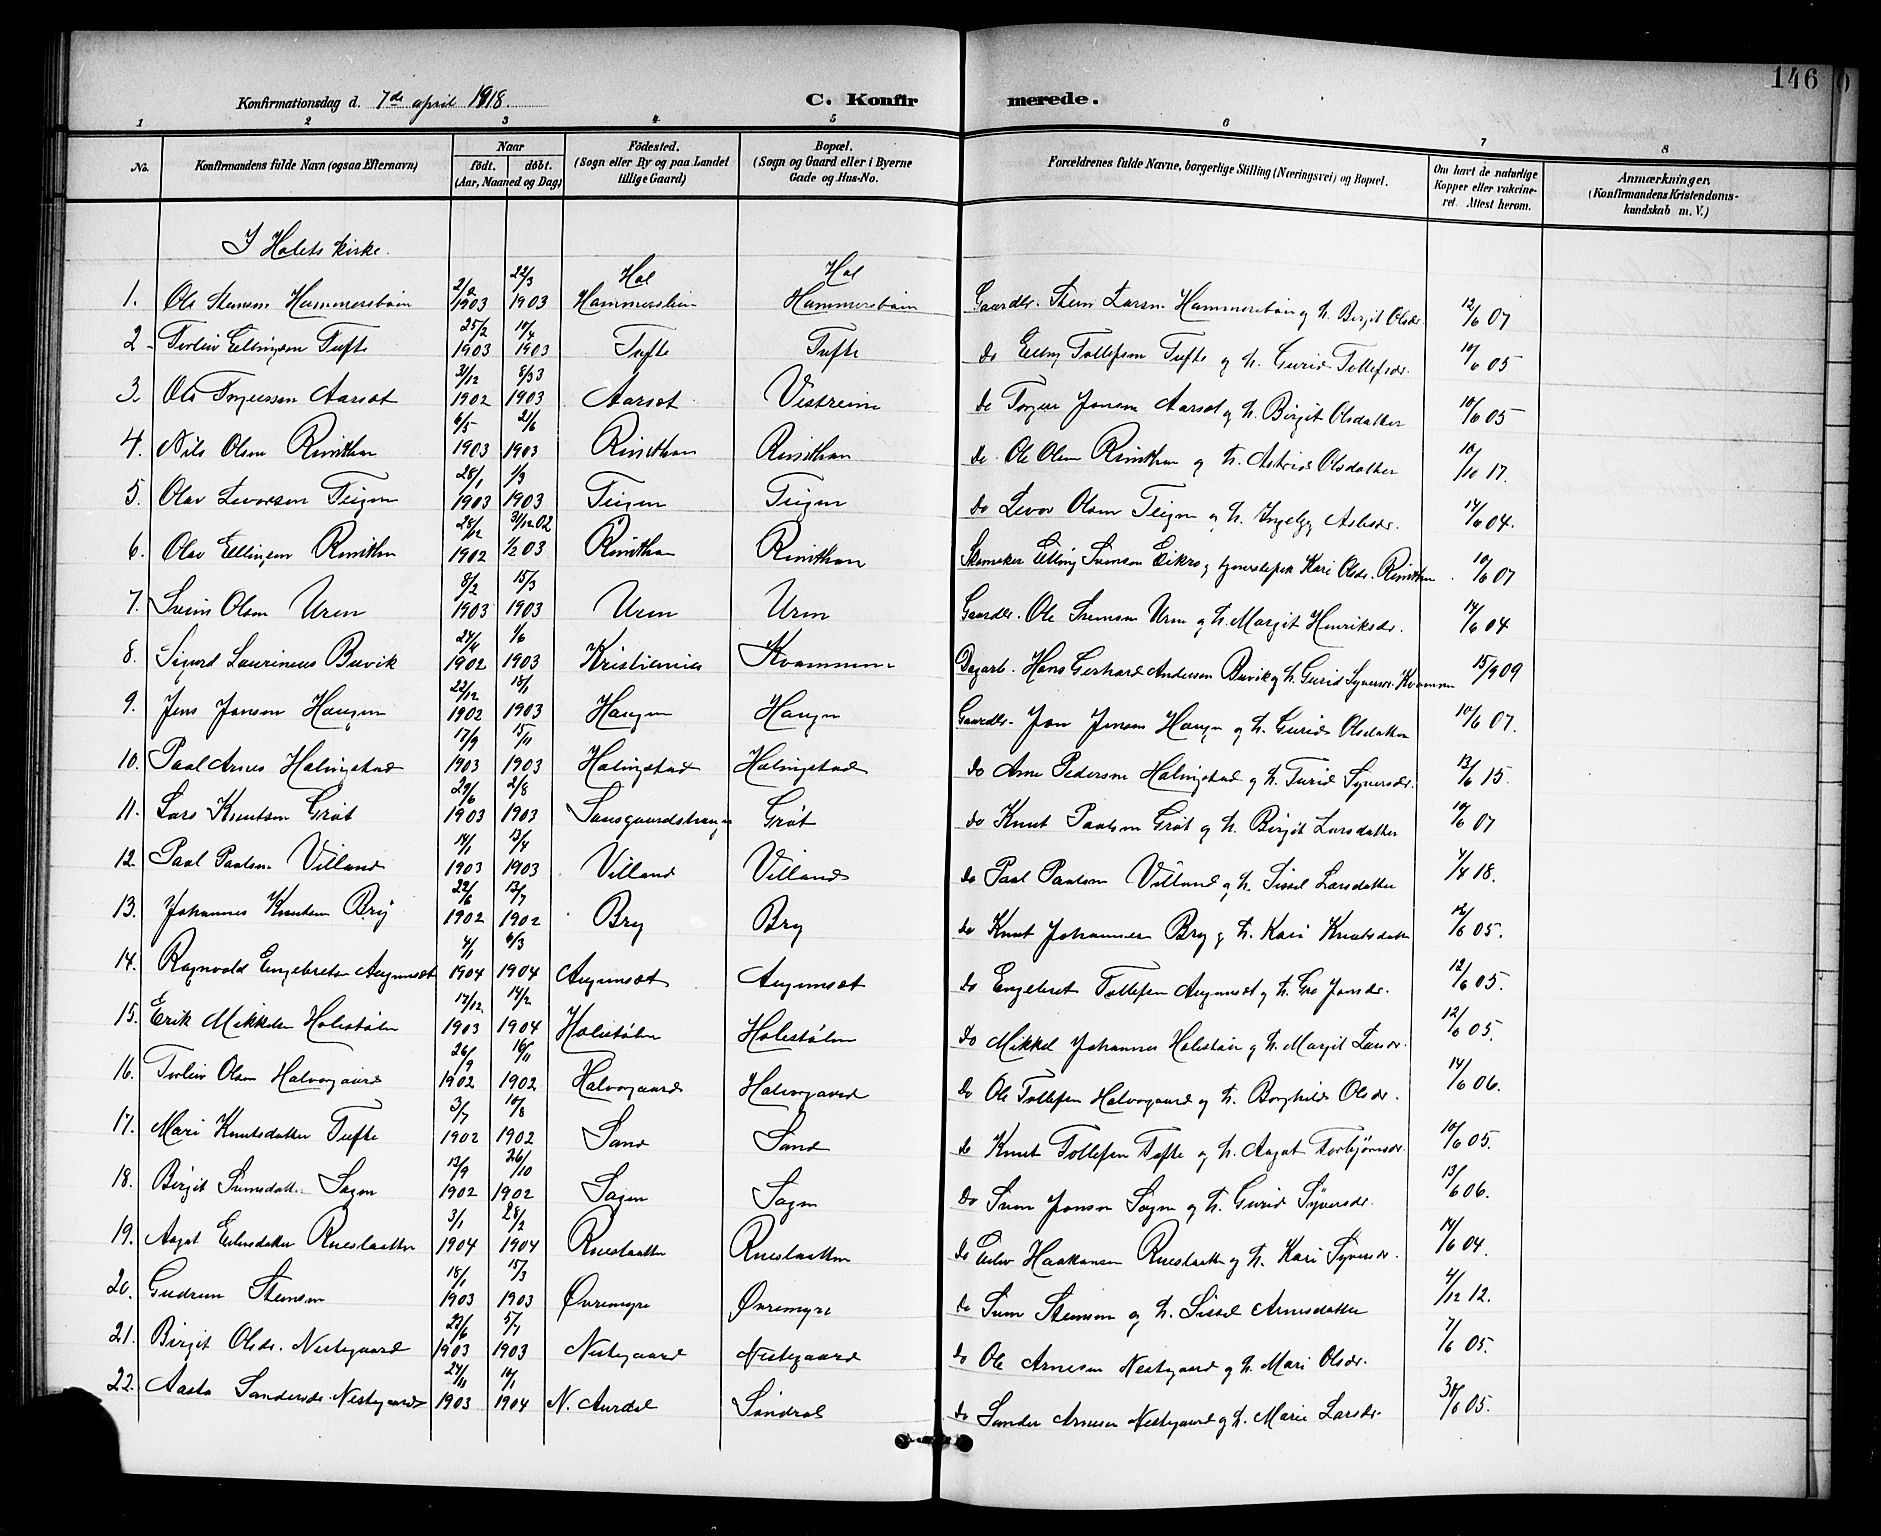 146
Konfirmationsdag d. 7de april 1918. C. Konfirmerede.
1 2 3 4 5 6 7 8
No. Konfirmandens fulde Navn (ogsaa Efternavn) Naar født. døbt. (Aar, Maaned og Dag) Fødested. (Sogn eller By og paa Landet tillige Gaard) Bopæl. (Sogn og Gaard eller i Byerne Gade og Hus-No. Forældrenes fulde Navne, borgerlige Stilling (Næringsvei) og Bopæl. Om havt de naturlige Kopper eller vakcineret. Attest herom. Anmærkninger. (Konfirmandens Kristendomskundskab m. V.)
I Holets kirke.
Hol Hol
1. Ole Hammersbøin 2/2 1903 22/3 1903 Hammersbøin Hammersbøin Gaardbr. Larsen Hammersbøin og h. Birgit Olsdr. 12/6 07
2. Torleiv Ellingsen Tufte 25/2 1903 1903 Tufte Tufte do Elling Tollefsen Tufte og h. Gurid Tollefsdr. 10/6 05
3. Ole Torgeirsen Aarset 31/12 1902 8/3 1903 Aarset Vestreim do Torgeir Jonsen Aarset og h. Birgit Olsdatter 10/6 05
4. Nils Olsen 6/5 1903 21/6 1903 do Ole Olsen og h. Astrid Olsdatter 10/10 17.
5. Olav Levorsen Teigen 28/1 1903 1/3 1903 Teigen Teigen do Levor Olsen Teigen og h. Ingebjg Aslesdr. 14/6 04.
6. Olav Ellingsen 28/12 1902 31/12 02 1/2 03 Elling Svensen Kari Olsdr. 10/6 07
7. Svein Olsen Urm 8/2 1903 15/3 1903 Urm Urm Gaardbr. Ole Urm og h. Margit Henriksdr. 14/6 04
8. Sigurd Laurineus Buvik 24/4 1902 1/6 1903 Kristiania Kvammen Dagarb. Hans Gerhard Andersen Buvik og h. Gurid Syversdr. Kvammen 15/9 09
9. Jens Jonsen Haugen 22/12 1902 18/1 1903 Haugen Haugen Gaardbr. Jon Jensen Haugen og h. Gurid Olsdatter 10/6 07.
10. Paal Arnes Halingstad 17/9 1903 15/11 1903 Halingstad Halingstad do Arne Pedersen Halingstad og h. Turid Syversdr. 13/6 15.
11. Lars Knutsen Grøt 29/6 1903 2/8 1903 Grøt do Knut Paalsen Grøt og h. Birgit Larsdatter 10/6 07
12. Paal Paalsen Villand 14/1 1903 13/4 1903 Villand Villand do Paal Paalsen Villand og h. Sissel Larsdatter 4/4 18.
13. Johannes Knutsen Bry 22/6 1902 13/7 1902 Bry Bry do Knut Johannesen Bry og h. Kari Knutsdatter 12/6 05.
14. Ragnvald Engebretsen Augunset 4/1 1904 6/3 1904 Augunset Augunset do Engebret Tollefsen Augunset og h. Gro Jonsdr. 12/6 05.
15. Erik Mikkelsen Holestølen 17/12 1903 14/2 1904 Holestølen Holestølen do Mikkel Johannes Holestøin og h. Margit Larsdr. 12/6 05.
16. Torleiv Olsen Halvorgaard 26/9 1902 16/11 1902 Halvorgaard Halvorgaard do Ole Tollefsen Halvorgaard og h. Borghild Olsdr. 14/6 06.
17. Mari Knutsdatter Tufte 3/7 1902 10/8 1902 Sand Sand do Knut Tollefsen Tufte og h. Aagot Torbjørnsdr. 10/6 05.
18. Birgit Svensdatt. Sagen 13/9 1902 26/10 1902 Sagen Sagen do Sven Jonsen Sagen og h. Gurid Syversdr. 13/6 06.
19. Aagot Eilevsdatter Rueslaatten 3/1 1904 28/2 1904 Rueslaatten Rueslaatten do Eilev Haakonsen Rueslaatten og h. Kari Syversdr. 14/6 04.
20. Gudrun Steinsen 18/1 1903 15/3 1903 Øvremyre Øvremyre do Stensen og h. Sissel Arnesdatter 4/12 12.
21. Birgit Olsdr. Nestegaard 23/6 1903 5/7 1903 Nestegaard Nestegaard do Ole Arnesen Nestegaard og h. Mari Olsdr. 7/6 05.
22. Aasta Sandersdr. Nestegaard 24/11 1903 1904 N. Aurdal Søndral do Sander Arnesen Nestegaard og h. Marie Larsdr. 30/6 05.